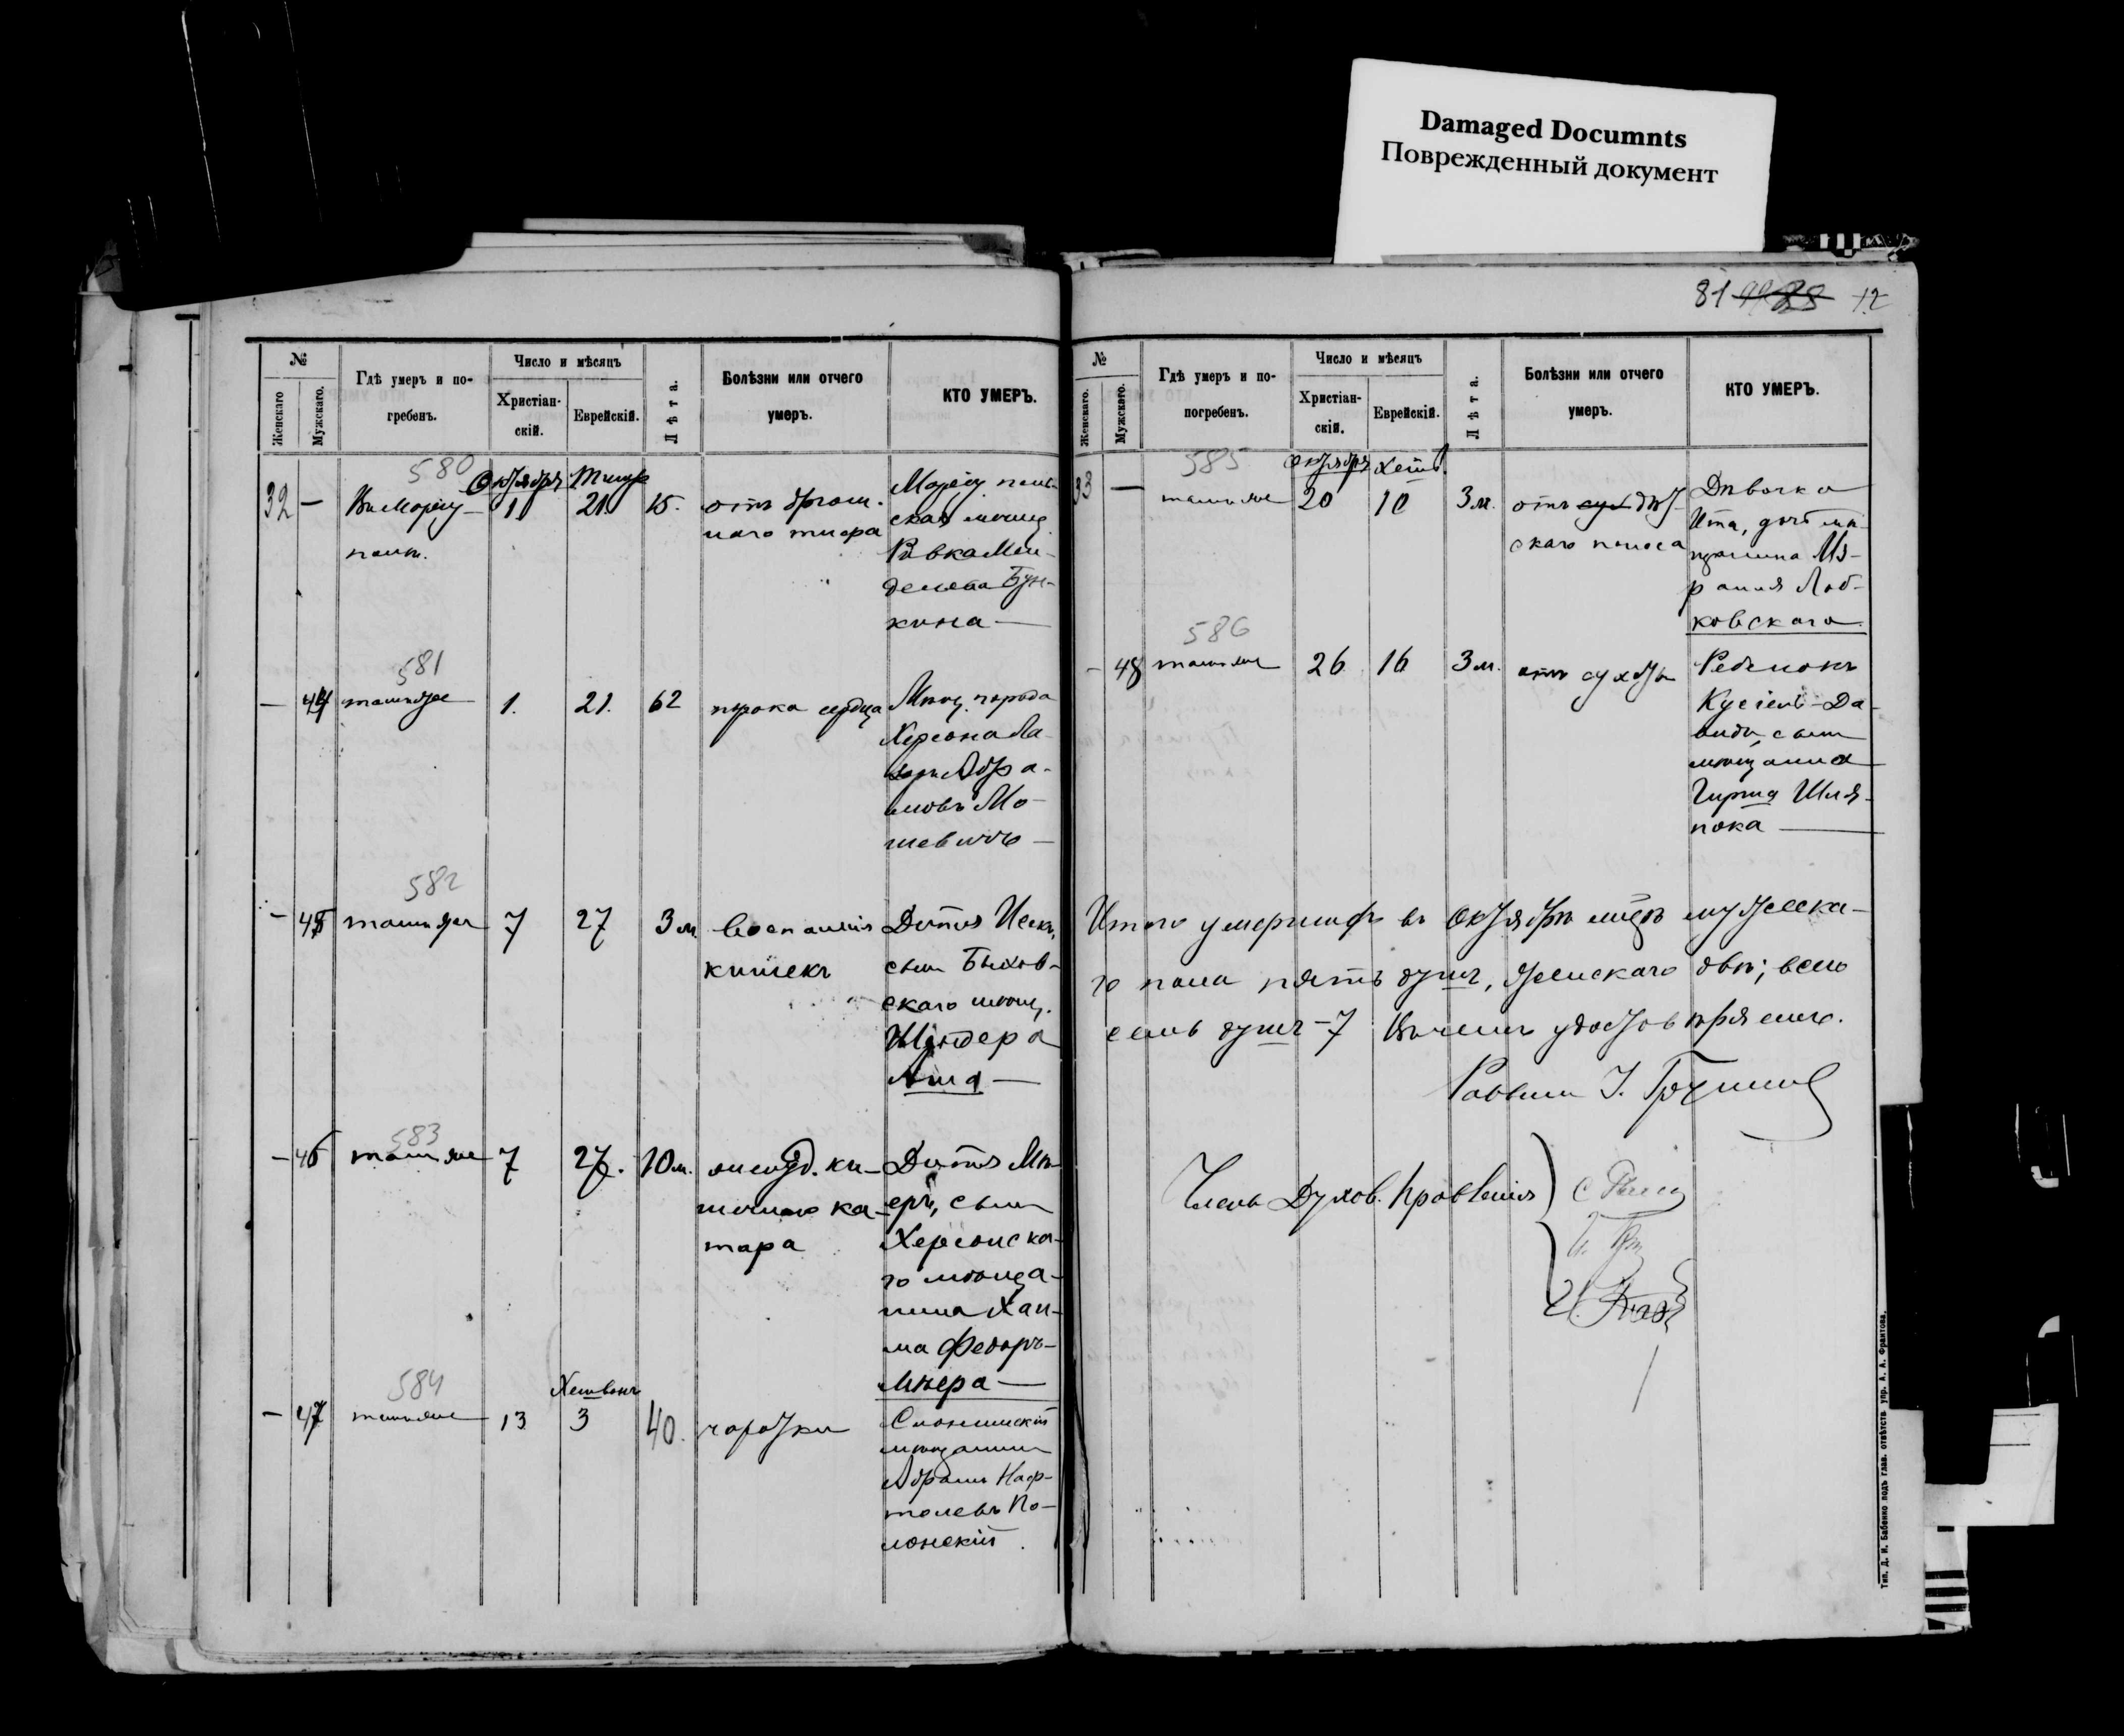 Damaged Documnts
Поврежденный документ
81 12
№
Женскаго
Мужскаго.
Гдѣ умеръ и по-
гребенъ.
Число и мѣсяцъ
Христіан-
скій.
Еврейскій.
Лѣта.
Болѣзни или отчего
умеръ.
КТО УМЕРЪ.
580
Октября
32 — 1 21 15. отъ брюш.
наго тифа
Ривка Мен-
делева Бун-
кина —
581
— 44 тамже 1. 21. 62 порока сердца
Мѣщ. города
Херсона
Абра-
мовъ Мо-
шевичъ —
582
- 45 тамже 7 27 3 м воспаленія
кишекъ
Дитя
сынъ Быхов-
скаго мѣщ.
583
- 46 тамже 7 27. 10 м. желуд. ки-
шечнаго ка-
тара
Дитя Мѣ-
еръ, сынъ
Херсонска-
го мѣща-
нина Хаи-
ма Федоръ-
Мѣера —
584
Хешванъ
- 47 тамже 13 3 40. чахотки
Слонимскій
мѣщанинъ
Абрамъ Наф-
толевъ По-
лонскій.
№
Женскаго.
Мужскаго.
Гдѣ умеръ и по-
погребенъ.
Число и мѣсяцъ
Христіан-
скій.
Еврейскій.
Лѣта.
Болѣзни или отчего
умеръ.
КТО УМЕРЪ.
585
Октября Хешв.
33 — тамже 20 10 3 м. отъ дѣт-
скаго поноса
Дѣвочка
Ита, дочь мѣ-
щанина Из-
раиля Лоб-
ковскаго.
586
- 48 тамже 26 16 3 м. отъ сухоты
Ребенокъ
Кусіель-Да-
видъ, сынъ
мѣщанина
Гирша Шля-
пока —
Итого умершихъ въ Октябрѣ мѣсѣ мужеска-
го пола пять душъ, женскаго двѣ; всего
семь душъ - 7 Въ чемъ удостовѣряемъ.
Раввинъ
Члены Духов. Правленія
Тип. Д. И. Бабенко подъ глав. отвѣтств. упр. А. А. Франтова.